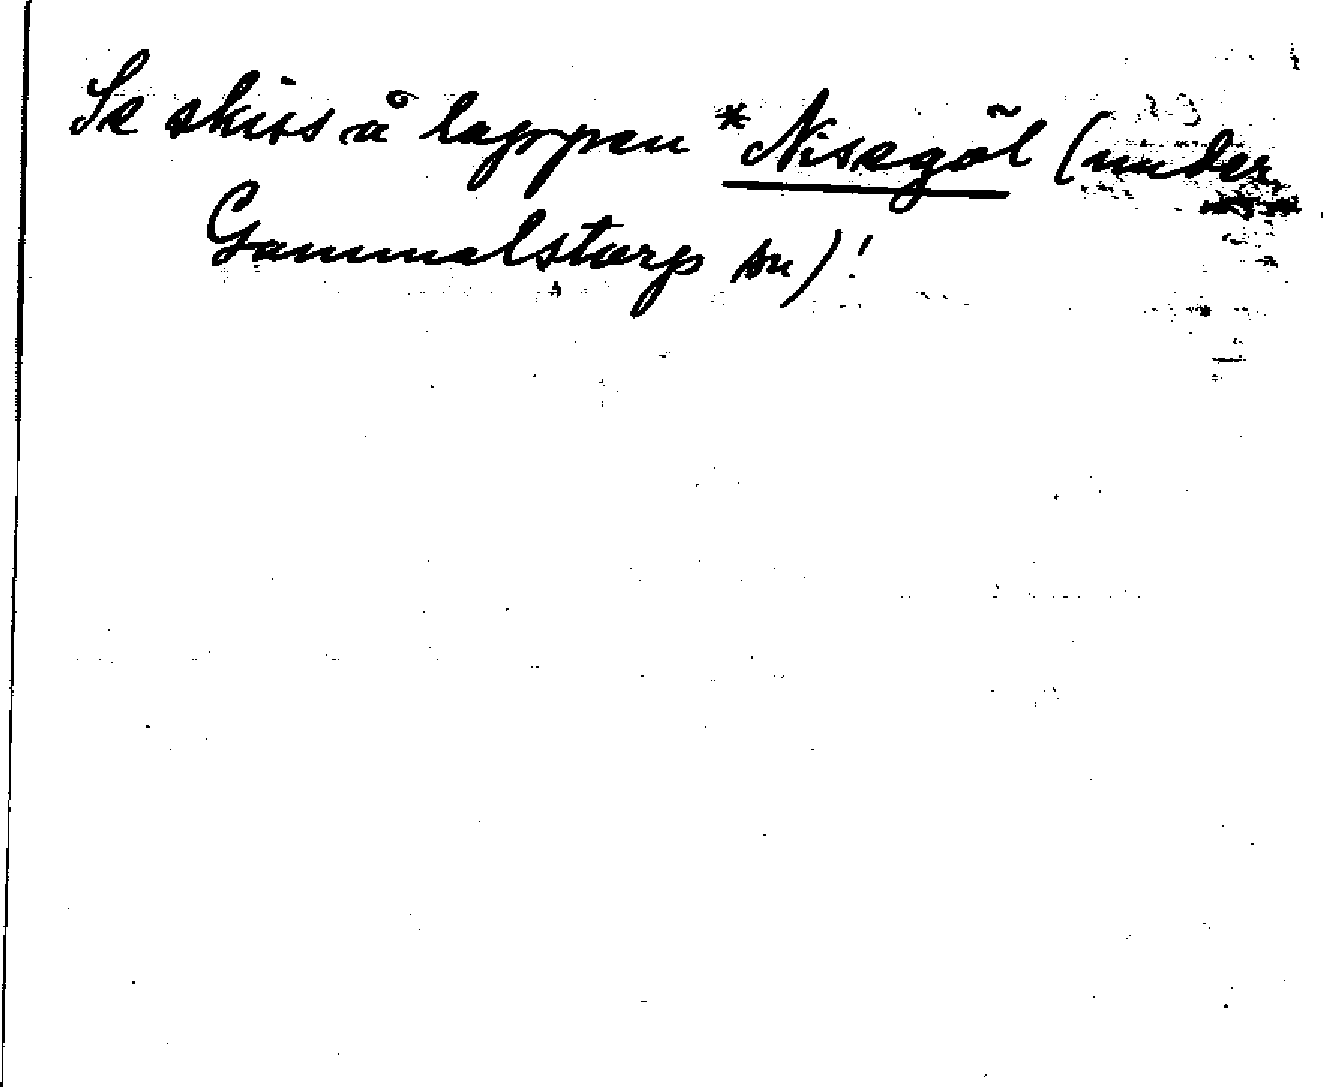 Se skiss å lappen *Nisegöl (under
Gammalstorp sn)!